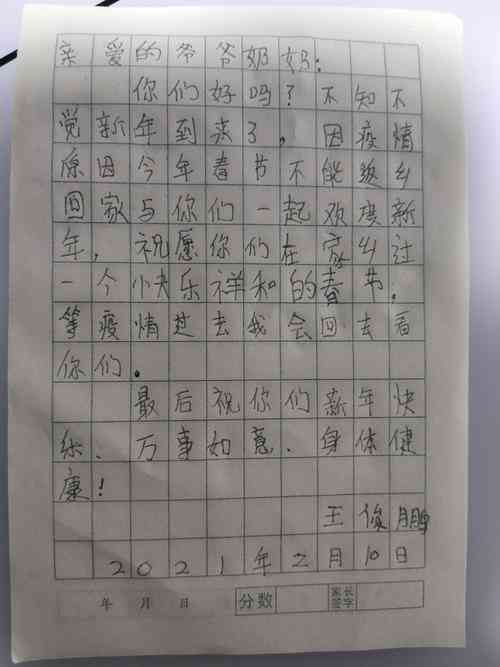 亲爱的爷爷奶奶：
你们好吗？不知不
觉新年到来了，因疫情
原因今年春节不能返乡
回家与你们一起欢度新
年，祝愿你们在家乡过
一个快乐祥和的春节。
等疫情过去我会回去看
你们。
最后祝你们新年快
乐、万事如意、身体健
康！
王俊鹏
2021年2月10日
年 月 日 分数 家长签字